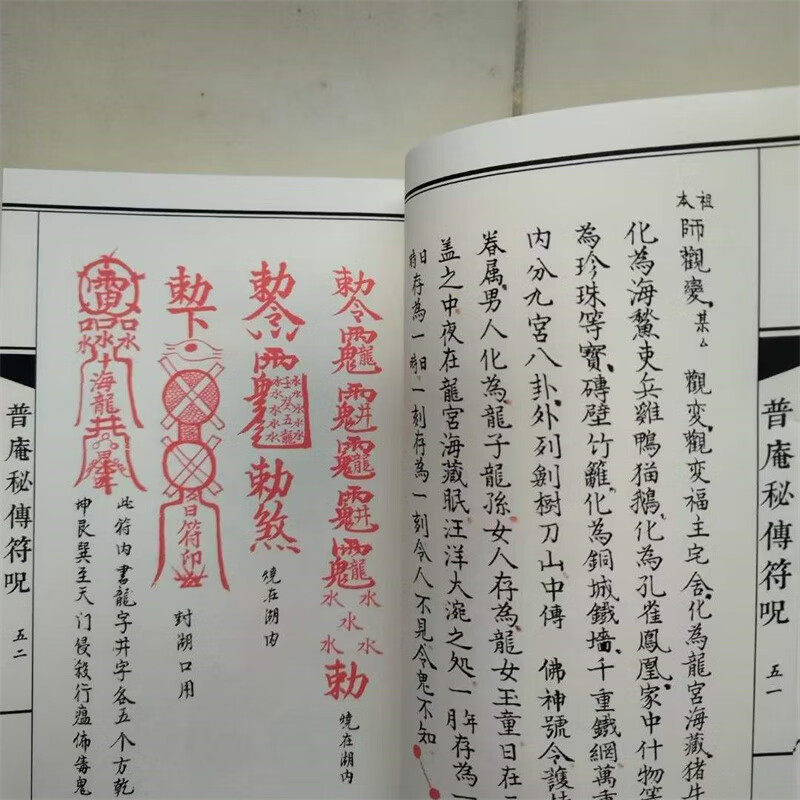 普庵秘傳符呪
五一
祖
本
師觀變、某厶 觀變、觀變福主宅舍、化為龍宮海藏、猪牛
化為海鰲吏兵雞鴨猫鵝、化為孔雀鳳凰、家中什物等
為珍珠等寶、磚壁竹籬、化為銅城鐵墻、千重鐵網萬重
内分九宮八卦、外列劍樹刀山中傳 佛神號令護
眷属、男人化為龍子龍孫、女人存為、龍女王童日在二
盖之中、夜在龍宮海藏眠汪洋大浤之処一年月存為一
日時存為一日時一刻存為一刻令人不見令鬼不知
勅令
水水水水水
勅
燒在湖内
勅令
壬癸五龍
水水水水水水水
勅煞
燒在湖内
勅下
符印
封湖口用
水水水
海龍井
此符内書龍字井字各五个方乾
坤艮巽至天门侵殺行瘟佈毒鬼
普庵秘傳符呪
五二